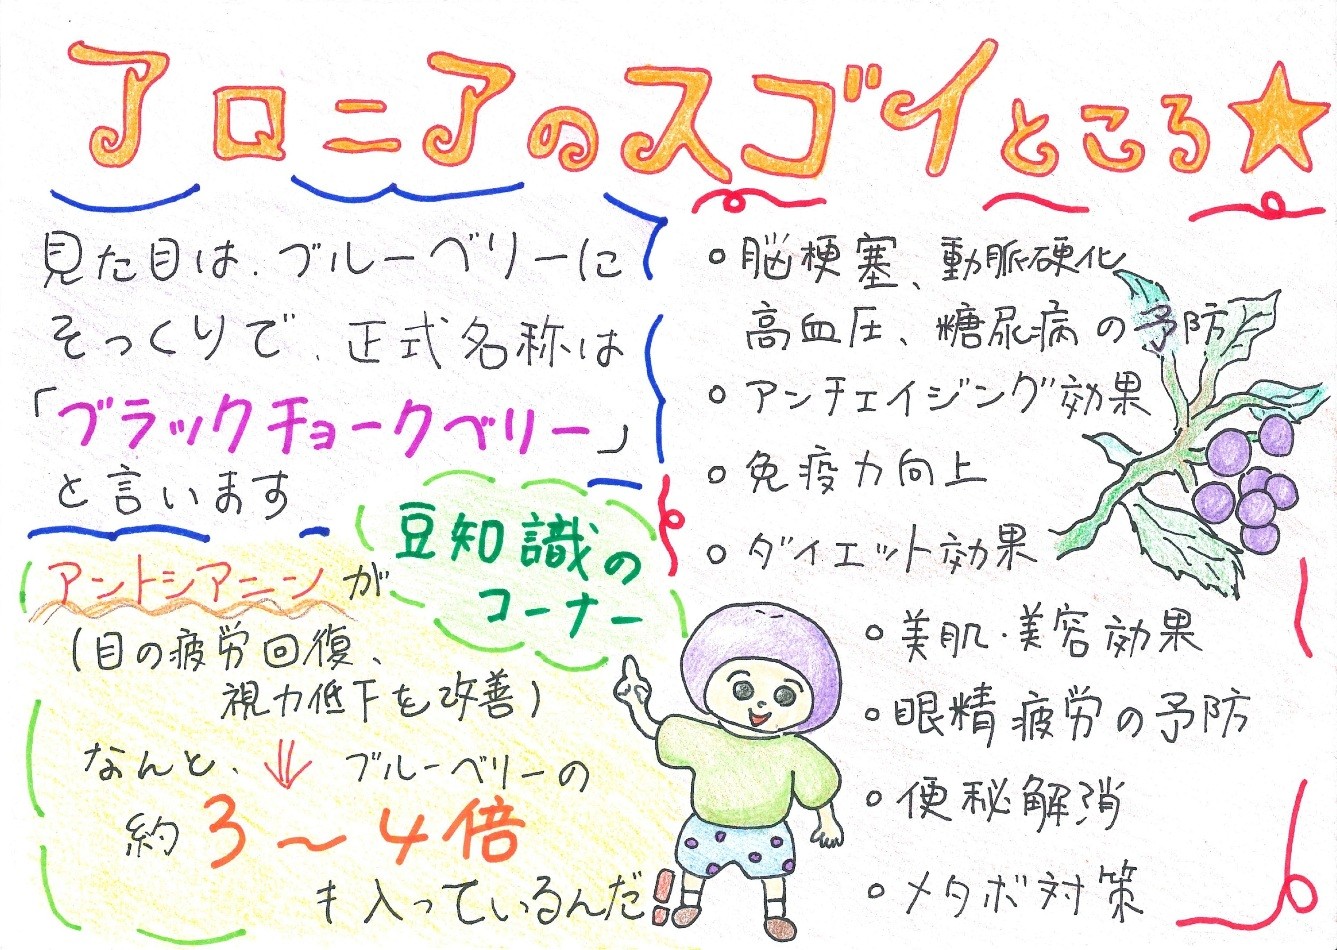 アロニアのスゴイところ★
見た目は、ブルーベリーに
そっくりで、正式名称は
「ブラックチョークベリー」
と言います
豆知識の
コーナー
アントシアニンが
(目の疲労回復、
視力低下を改善)
なんと、ブルーベリーの
約3〜4倍
も入っているんだ!!
○脳梗塞、動脈硬化
高血圧、糖尿病の予防
○アンチェイジング効果
○免疫力向上
○ダイエット効果
○美肌・美容効果
○眼精疲労の予防
○便秘解消
○メタボ対策